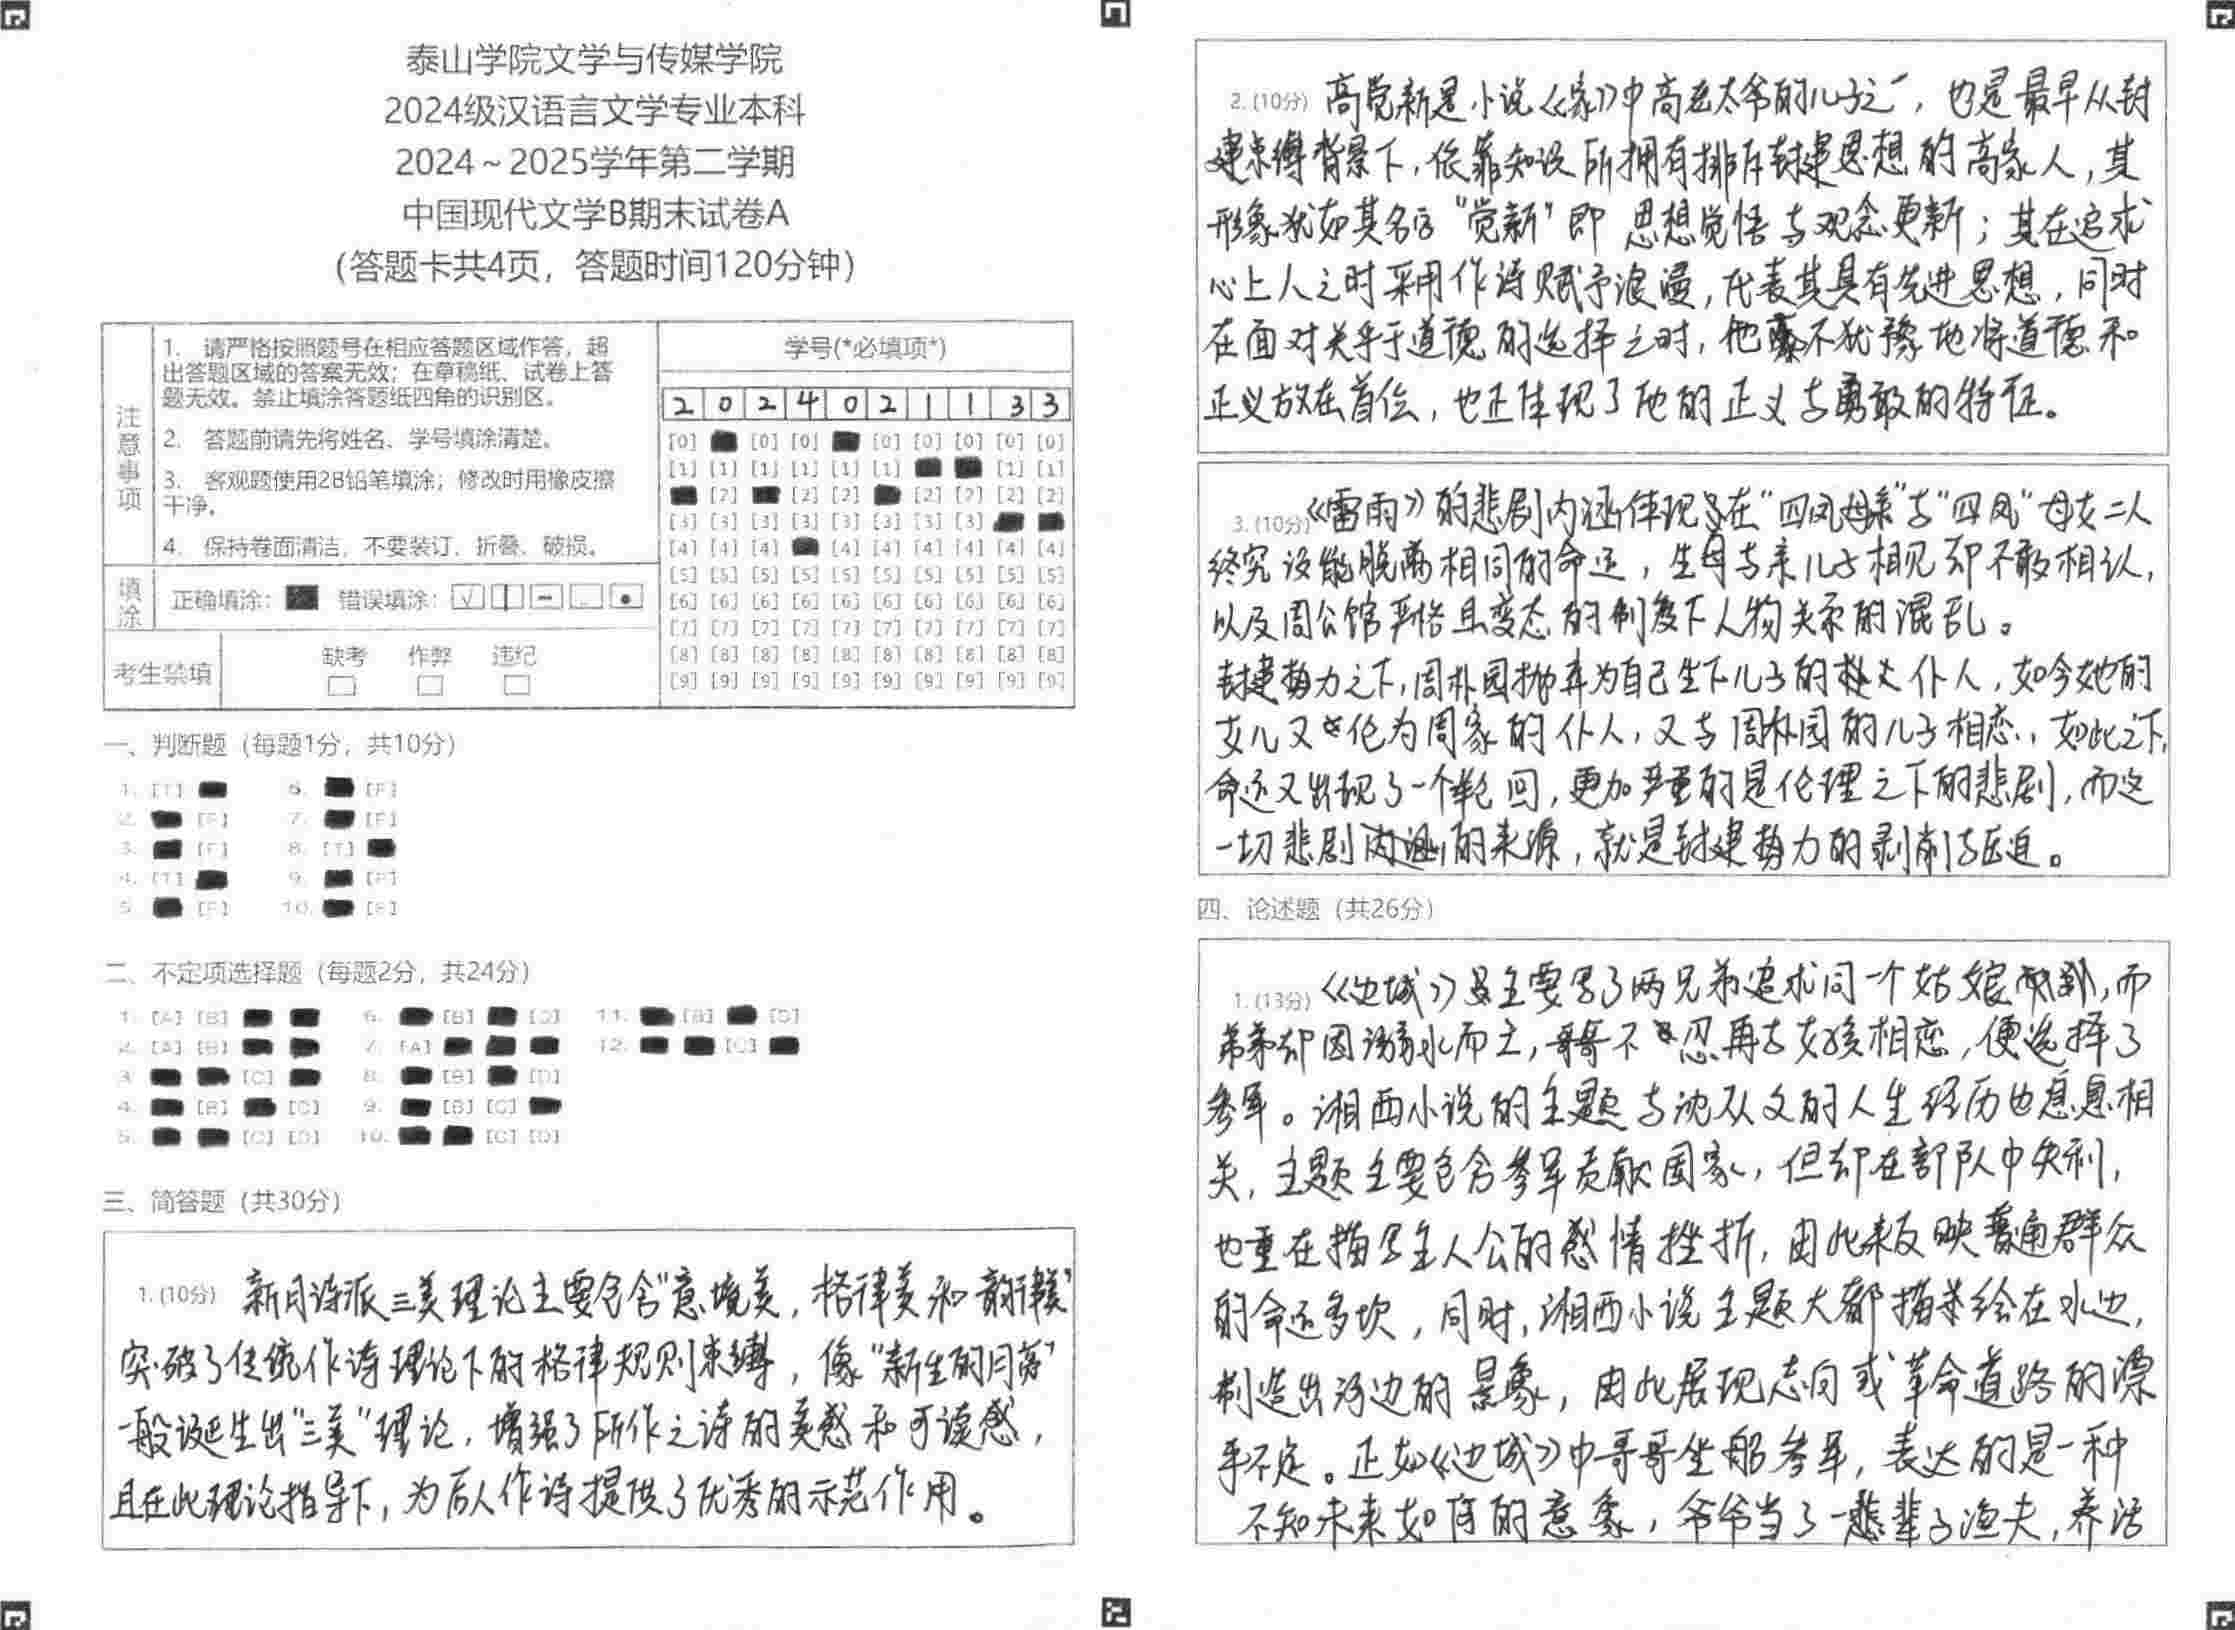 泰山学院文学与传媒学院
2024级汉语言文学专业本科
2024～2025学年第二学期
中国现代文学B期末试卷A
（答题卡共4页，答题时间120分钟）
注意事项
1. 请严格按照题号在相应答题区域作答，超
出答题区域的答案无效；在草稿纸、试卷上答
题无效。禁止填涂答题纸四角的识别区。
2. 答题前请先将姓名、学号填涂清楚。
3. 客观题使用2B铅笔填涂；修改时用橡皮擦
干净。
4. 保持卷面清洁，不要装订、折叠、破损。
填涂
正确填涂： 错误填涂：
考生禁填
缺考 作弊 违纪
学号(*必填项*)
2 0 2 4 0 2 1 1 3 3
[0] [0] [0] [0] [0] [0] [0] [0]
[1] [1] [1] [1] [1] [1] [1] [1]
[2] [2] [2] [2] [2] [2] [2]
[3] [3] [3] [3] [3] [3] [3] [3]
[4] [4] [4] [4] [4] [4] [4] [4] [4]
[5] [5] [5] [5] [5] [5] [5] [5] [5] [5]
[6] [6] [6] [6] [6] [6] [6] [6] [6] [6]
[7] [7] [7] [7] [7] [7] [7] [7] [7] [7]
[8] [8] [8] [8] [8] [8] [8] [8] [8] [8]
[9] [9] [9] [9] [9] [9] [9] [9] [9] [9]
一、判断题（每题1分，共10分）
1. [T] 6. [F]
2. [F] 7. [F]
3. [F] 8. [T]
4. [T] 9. [F]
5. [F] 10. [F]
二、不定项选择题（每题2分，共24分）
1. [A] [B] 6. [B] [D] 11. [B] [D]
2. [A] [B] 7. [A] 12. [C]
3. [C] 8. [B] [D]
4. [B] [D] 9. [B] [C]
5. [C] [D] 10. [C] [D]
三、简答题（共30分）
1. (10分) 新月诗派三美理论主要包含"意境美，格律美和韵律美"
突破了传统作诗理论下的格律规则束缚，像"新生的月亮"
一般诞生出"三美"理论，增强了所作之诗的美感和可读感，
且在此理论指导下，为后人作诗提供了优秀的示范作用。
2. (10分) 高觉新是小说《家》中高老太爷的儿子之一，也是最早从封
建束缚背景下，依靠知识所拥有排斥封建思想的高家人，其
形象犹如其名字"觉新"即 思想觉悟与观念更新；其在追求
心上人之时采用作诗赋予浪漫，代表其具有先进思想，同时
在面对关乎于道德的选择之时，他不犹豫地将道德和
正义放在首位，也正体现了他的正义与勇敢的特征。
3. (10分) 《雷雨》的悲剧内涵体现在"四凤母亲"与"四凤"母女二人
终究没能脱离相同的命运，生母与亲儿子相见却不敢相认，
以及周公馆严格且变态的制度下人物关系的混乱。
封建势力之下，周朴园抛弃为自己生下儿子的仆人，如今她的
女儿又伦为周家的仆人，又与周朴园的儿子相恋，如此之下，
命运又出现了一个轮回，更加严重的是伦理之下的悲剧，而这
一切悲剧的来源，就是封建势力的剥削与压迫。
四、论述题（共26分）
1. (13分) 《边城》主要写了两兄弟追求同一个姑娘，而
弟弟却因溺水而亡，哥哥不忍再与女孩相恋，便选择了
参军。湘西小说的主题与沈从文的人生经历也息息相
关，主题主要包含参军贡献国家，但却在部队中失利，
也重在描写主人公的感情挫折，由此来反映普通群众
的命运多坎，同时，湘西小说主题大都描绘在水边，
制造出河边的景象，由此展现志向或革命道路的漂
乎不定。正如《边城》中哥哥坐船参军，表达的是一种
不知未来如何的意象，爷爷当了一辈子渔夫，养活